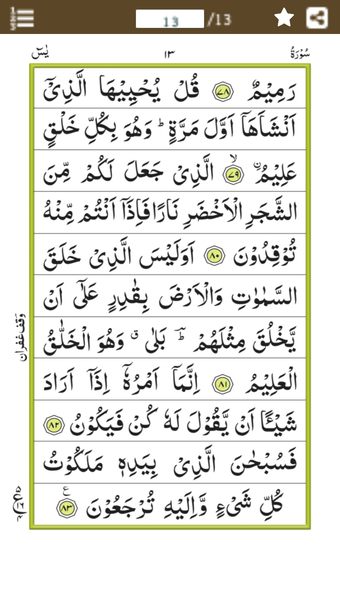 13 /13
سُوْرَةُ ١٣ يٰسٓ
رَمِيْمٌ ﴿۷۸﴾ قُلْ يُحْيِيْهَا الَّذِيْٓ
اَنْشَاَهَاۤ اَوَّلَ مَرَّةٍ ؕ وَهُوَ بِكُلِّ خَلْقٍ
عَلِيْمُ ۨ ﴿ۙ۷۹﴾ الَّذِيْ جَعَلَ لَكُمْ مِّنَ
الشَّجَرِ الْاَخْضَرِ نَارًا فَاِذَاۤ اَنْتُمْ مِّنْهُ
تُوْقِدُوْنَ ﴿۸۰﴾ اَوَلَيْسَ الَّذِيْ خَلَقَ
السَّمٰوٰتِ وَالْاَرْضَ بِقٰدِرٍ عَلٰٓى اَنْ
يَّخْلُقَ مِثْلَهُمْ ؕ بَلٰى ۗ وَهُوَ الْخَلّٰقُ
وقف غفران
الْعَلِيْمُ ﴿۸۱﴾ اِنَّمَاۤ اَمْرُهٗۤ اِذَاۤ اَرَادَ
شَيْـًٔا اَنْ يَّقُوْلَ لَهٗ كُنْ فَيَكُوْنُ ﴿۸۲﴾
فَسُبْحٰنَ الَّذِيْ بِيَدِهٖ مَلَكُوْتُ
كُلِّ شَيْءٍ وَّاِلَيْهِ تُرْجَعُوْنَ ﴿۸۳﴾ ع